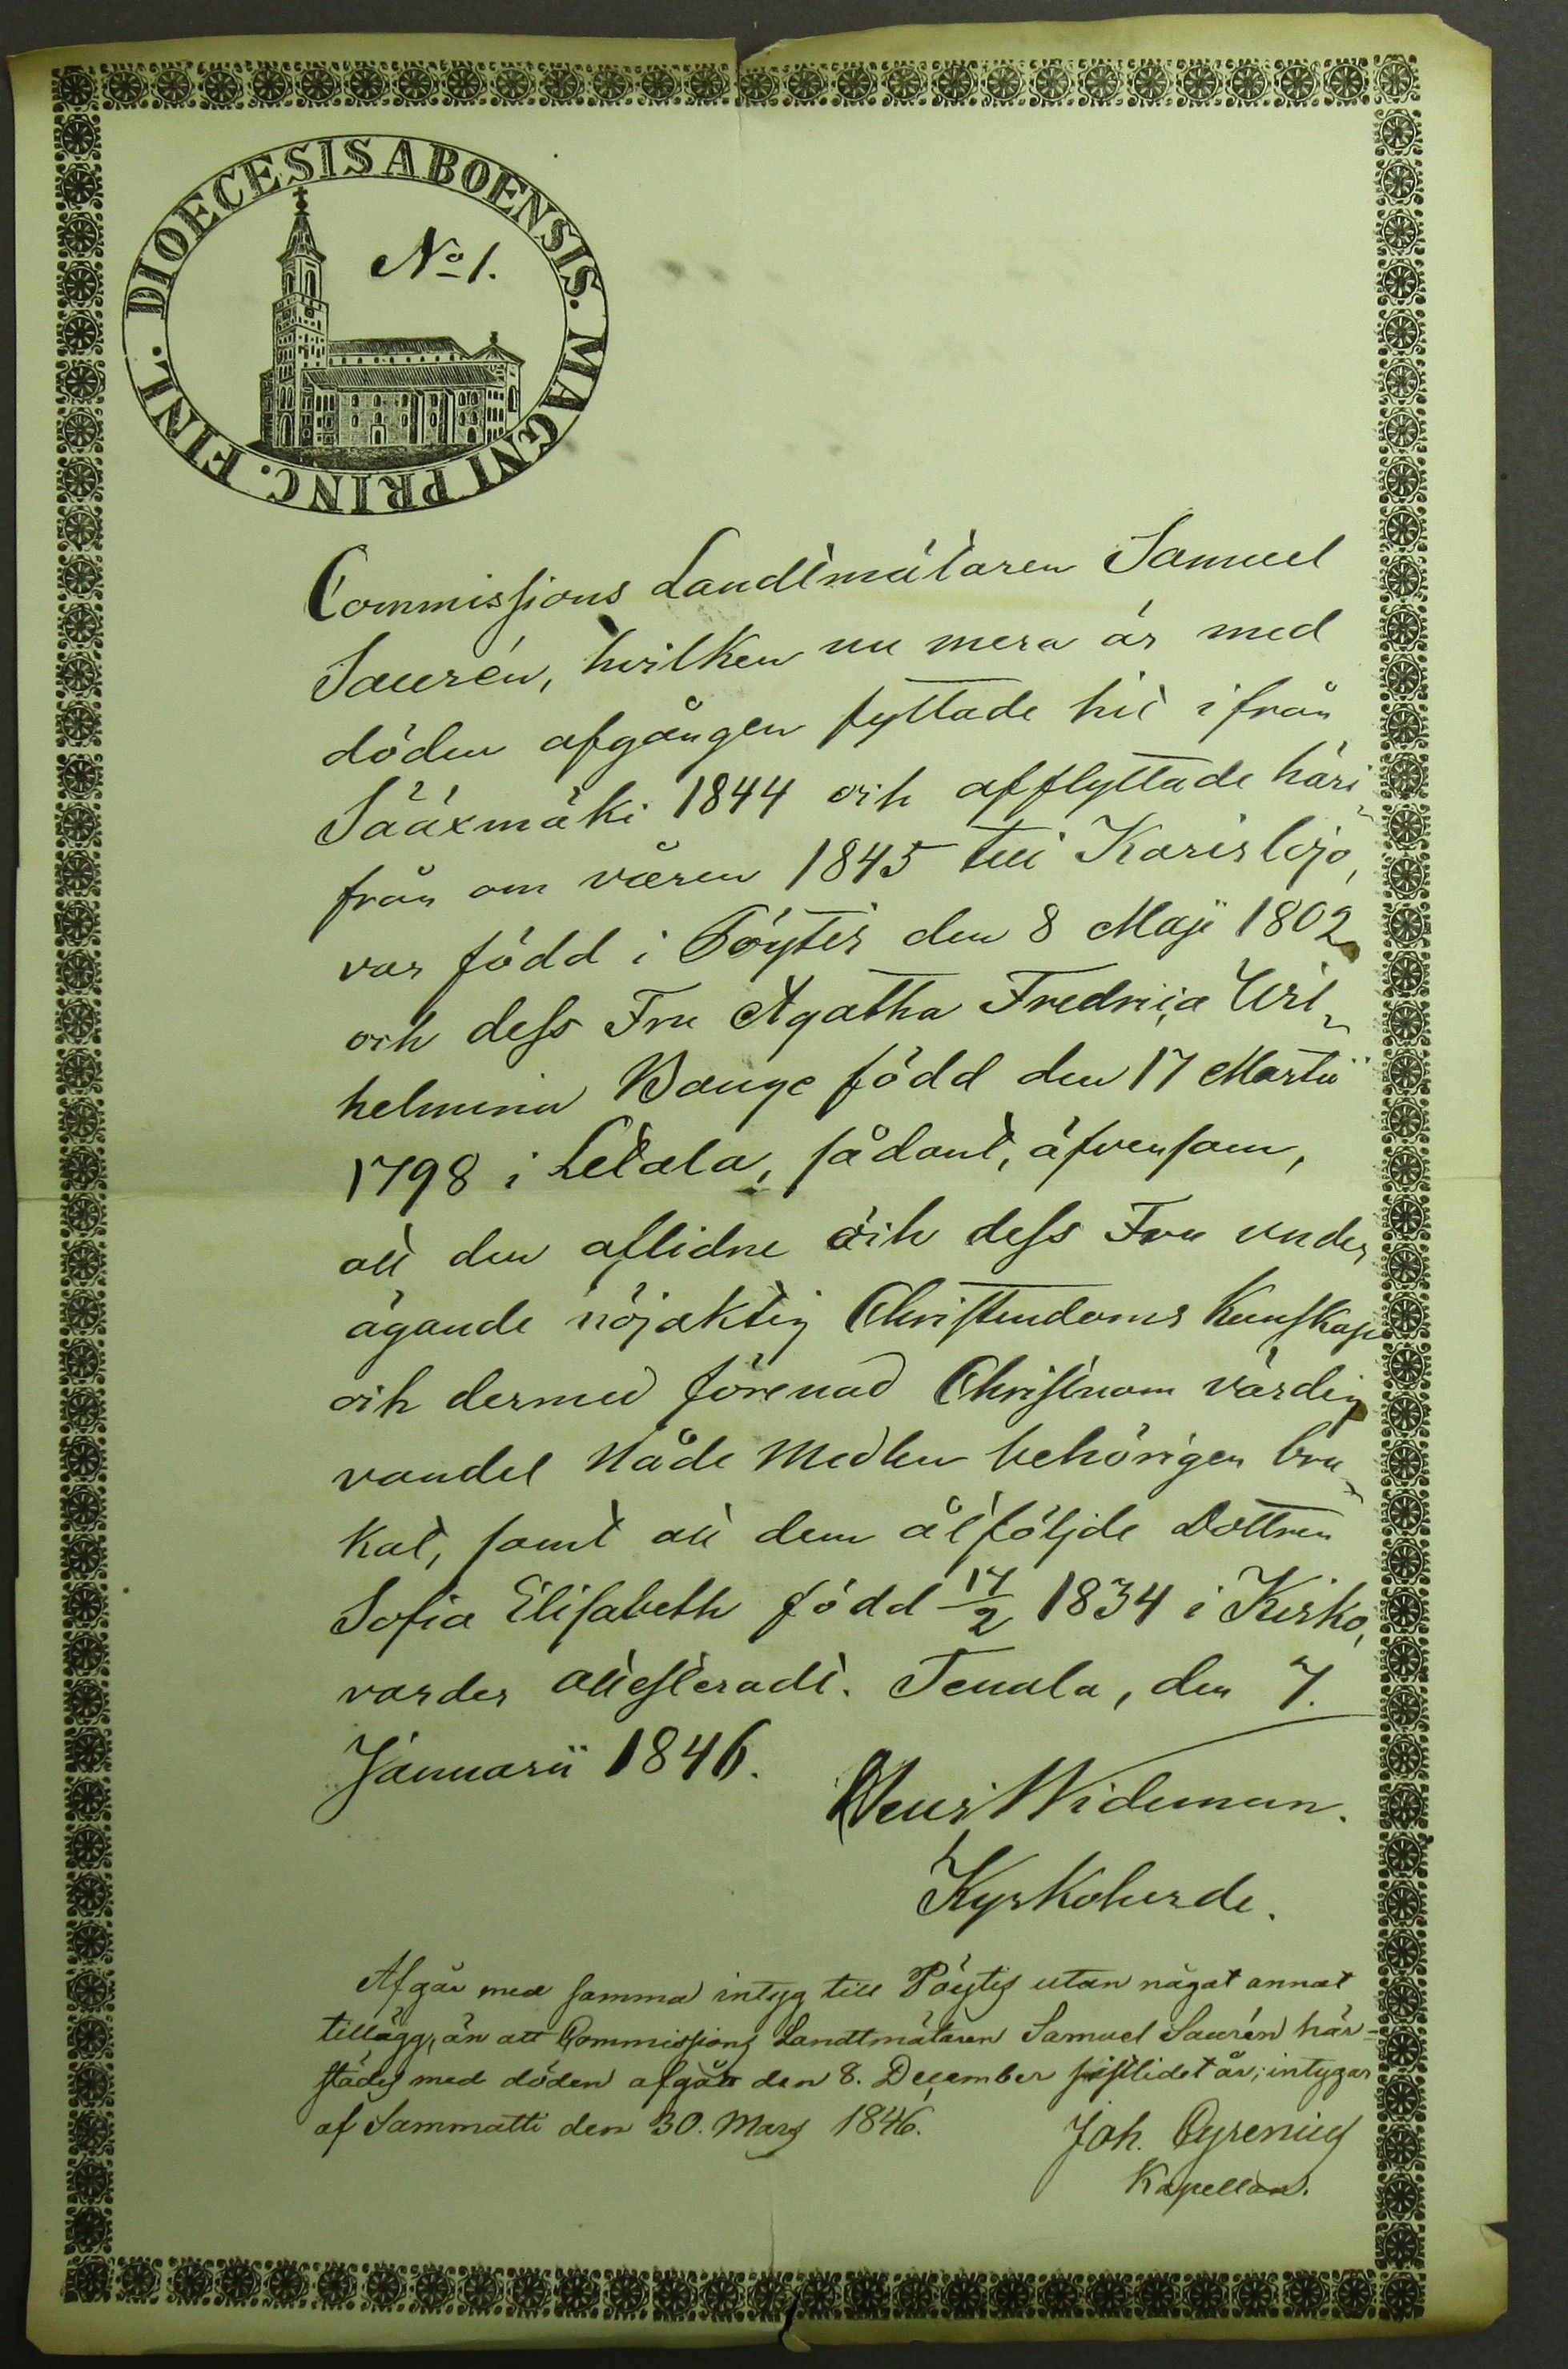 DIOECESIS ABOENSIS. MAGNI PRINC. FINL.
No 1.
Commissions Landtmätaren Samuel
Saurén, hvilken nu mera är med
döden afgången flyttade hit ifrån
Sääxmäki 1844 och afflyttade häri
från om våren 1845 till Karislojo,
var född i Pöytis den 8 Maji 1802
och dess Fru Agatha Fredrica Wil
helmina Bange född den 17 Martii
1798 i Letala, sådant, äfvensom,
att den aflidne och dess Fru under
ägande nöjaktig Christendoms Kunskap
och dermed förenad Christnom värdig
vandel Nåde Medlen behörigen bru
kat, samt att dem åtföljde Dottren
Sofia Elisabeth född 17/2 1834 i Kisko,
varder attesteradt. Tenala, den 7.
Januarii 1846.
Wideman.
Kyrkoherde.
Afgår med samma intyg till Pöytis utan något annat
tillägg, än att Commissions Landtmätaren Samuel Saurén här-
städes med döden afgått den 8. December sistlidet år; intygar
af Sammatti den 30. Mars 1846.
Joh. Cyrenius
Kapellan.